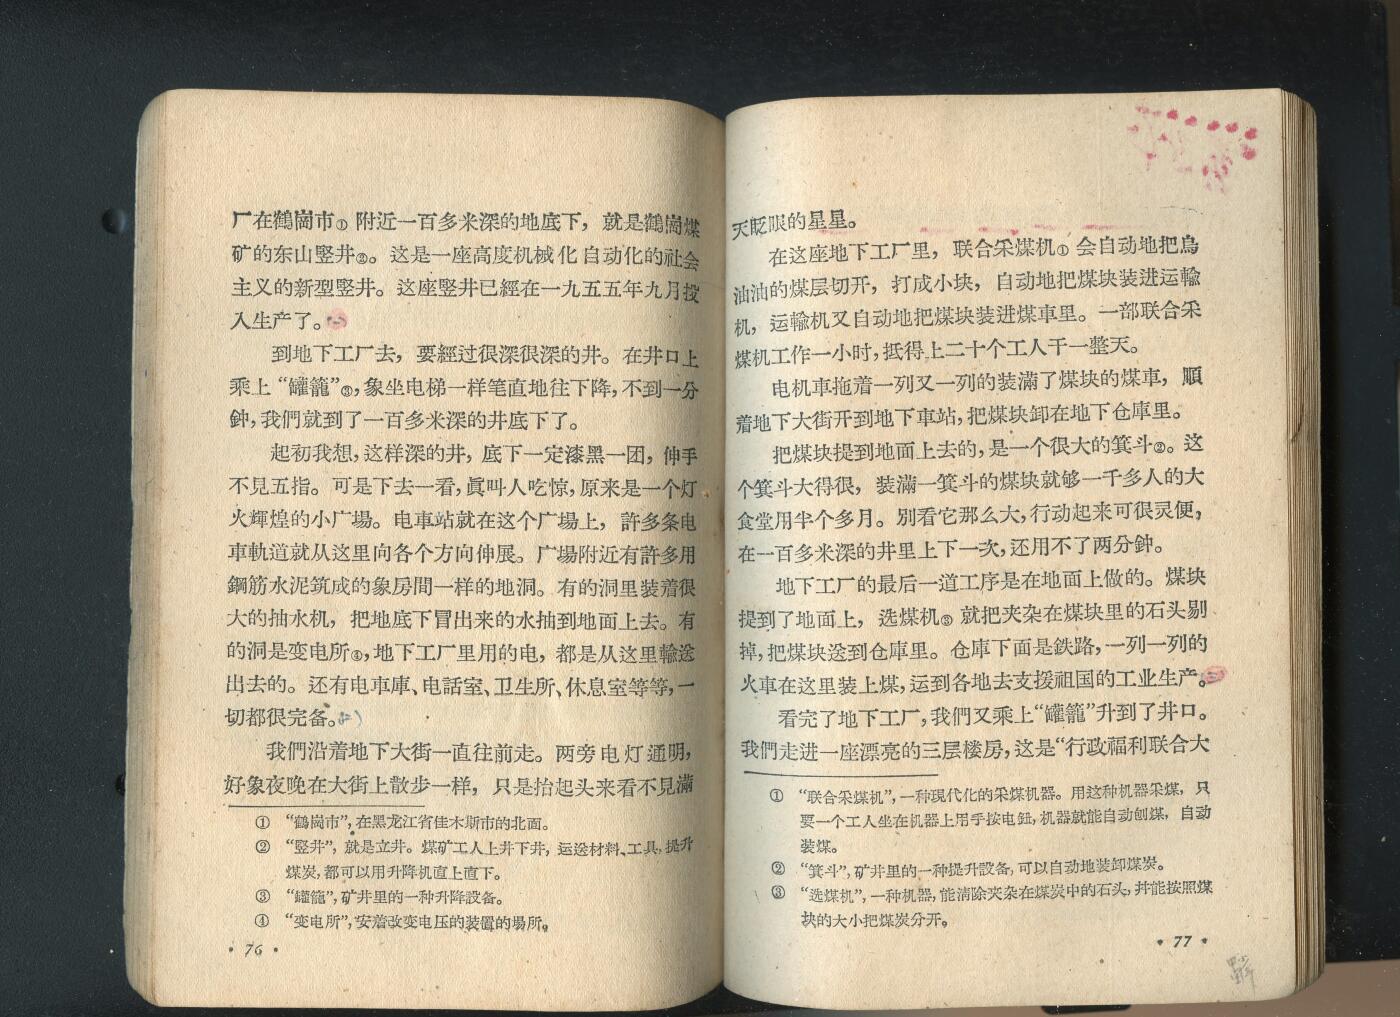 厂在鶴崗市① 附近一百多米深的地底下，就是鶴崗煤
矿的东山竪井②。这是一座高度机械化自动化的社会
主义的新型竪井。这座竪井已經在一九五五年九月投
入生产了。
到地下工厂去，要經过很深很深的井。在井口上
乘上“罐籠”③，象坐电梯一样笔直地往下降，不到一分
鈡，我們就到了一百多米深的井底下了。
起初我想，这样深的井，底下一定漆黑一团，伸手
不見五指。可是下去一看，眞叫人吃惊，原来是一个灯
火輝煌的小广場。电車站就在这个广場上，許多条电
車軌道就从这里向各个方向伸展。广場附近有許多用
鋼筋水泥筑成的象房間一样的地洞。有的洞里装着很
大的抽水机，把地底下冒出来的水抽到地面上去。有
的洞是变电所④，地下工厂里用的电，都是从这里輸送
出去的。还有电車庫、电話室、卫生所、休息室等等，一
切都很完备。
我們沿着地下大街一直往前走。两旁电灯通明，
好象夜晚在大街上散步一样，只是抬起头来看不見滿
① “鶴崗市”，在黑龙江省佳木斯市的北面。
② “竪井”，就是立井。煤矿工人上井下井，运送材料、工具，提升
煤炭，都可以用升降机直上直下。
③ “罐籠”，矿井里的一种升降設备。
④ “变电所”，安着改变电压的装置的場所。
• 76 •
天眨眼的星星。
在这座地下工厂里，联合采煤机① 会自动地把烏
油油的煤层切开，打成小块，自动地把煤块装进运輸
机，运輸机又自动地把煤块装进煤車里。一部联合采
煤机工作一小时，抵得上二十个工人干一整天。
电机車拖着一列又一列的装滿了煤块的煤車，順
着地下大街开到地下車站，把煤块卸在地下仓庫里。
把煤块提到地面上去的，是一个很大的箕斗②。这
个箕斗大得很，装滿一箕斗的煤块就够一千多人的大
食堂用半个多月。別看它那么大，行动起来可很灵便，
在一百多米深的井里上下一次，还用不了两分鈡。
地下工厂的最后一道工序是在地面上做的。煤块
提到了地面上，选煤机③ 就把夹杂在煤块里的石头剔
掉，把煤块送到仓庫里。仓庫下面是鉄路，一列一列的
火車在这里装上煤，运到各地去支援祖国的工业生产。
看完了地下工厂，我們又乘上“罐籠”升到了井口。
我們走进一座漂亮的三层楼房，这是“行政福利联合大
① “联合采煤机”，一种現代化的采煤机器。用这种机器采煤，只
要一个工人坐在机器上用手按电鈕，机器就能自动刨煤，自动
装煤。
② “箕斗”，矿井里的一种提升設备，可以自动地装卸煤炭。
③ “选煤机”，一种机器，能清除夹杂在煤炭中的石头，幷能按照煤
块的大小把煤炭分开。
• 77 •